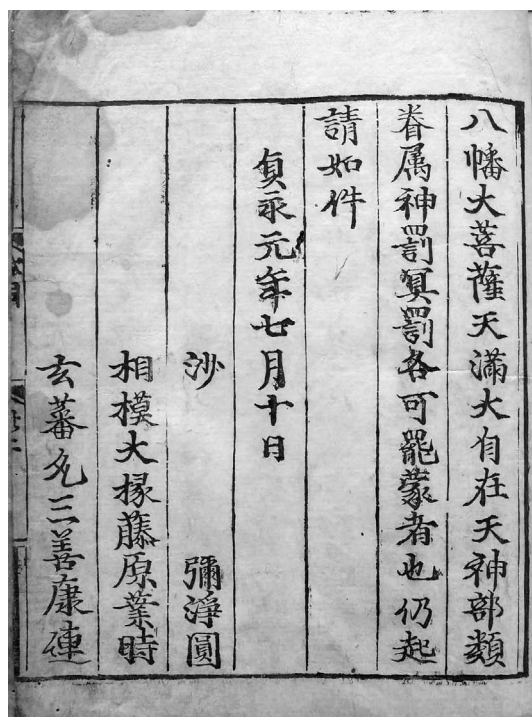 八幡大菩薩天滿大自在天神部類
眷属神罰冥罰各可罷蒙者也仍起
請如件
貞永元年七月十日
沙彌淨圓
相模大掾藤原業時
玄蕃允三善康連